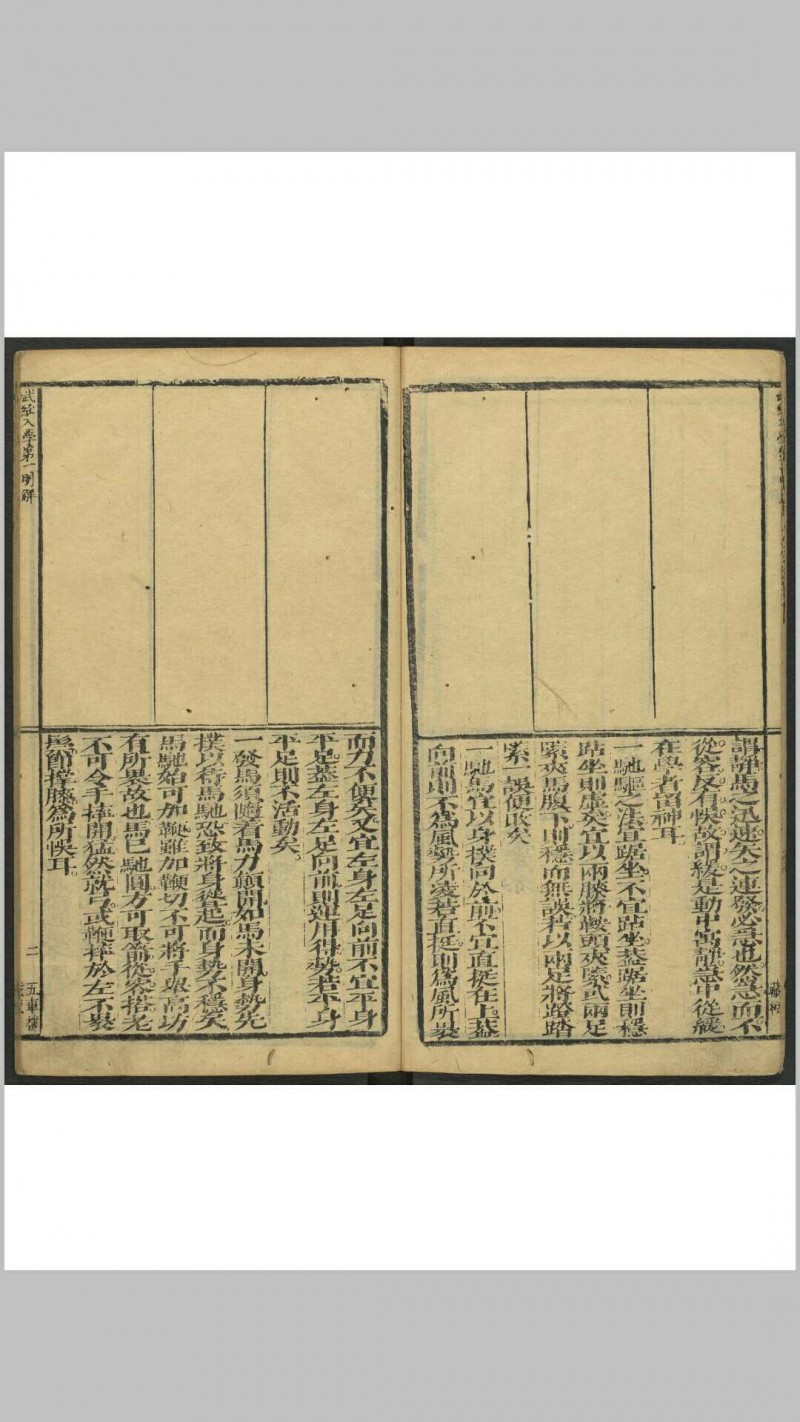 謂靜馬之迅速矢之連發必急也然急而不
從容反有悞故謂緩是動中寓靜急中從緩
在學者留神耳
一馳驅之法宜踞坐不宜跕坐葢踞坐則穩
跕坐則虛矣宜以兩膝將鞍頭夾緊或兩足
緊夾馬腹下則穩而無誤若以兩足將鐙踏
索一誤便收矣
一馳馬宜以身撲向於前不宜直挺在上葢
向前則不爲風勢所凌若直挺則爲風所裊
而力不便矣又宜左身左足向前不宜平身
平足葢左身左足向前則運用得勢若平身
平足則不活動矣
一發馬須隨着馬力傾開如馬未開身勢先
撲以待馬馳恐致將身從起而身勢不穩矣
馬馳始可加鞭雖加鞭切不可將手舉高功
有所異故也馬已馳圓方可取箭從容搭老
不可令手捧開猛然就弓或鞭捧於左不裊
爲節撑膝爲所悞耳
武經入學第一明解
二
五車樓